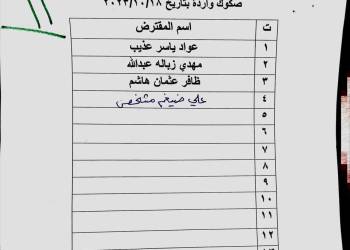 صكوك واردة بتاريخ ٢٠٢٣/١٠/١٨
ت اسم المقترض
١ عواد ياسر عذيب
٢ مهدي زباله عبدالله
٣ ظافر عثمان هاشم
٤ علي ضيغم
٥
٦
٧
٨
٩
١٠
١١
١٢